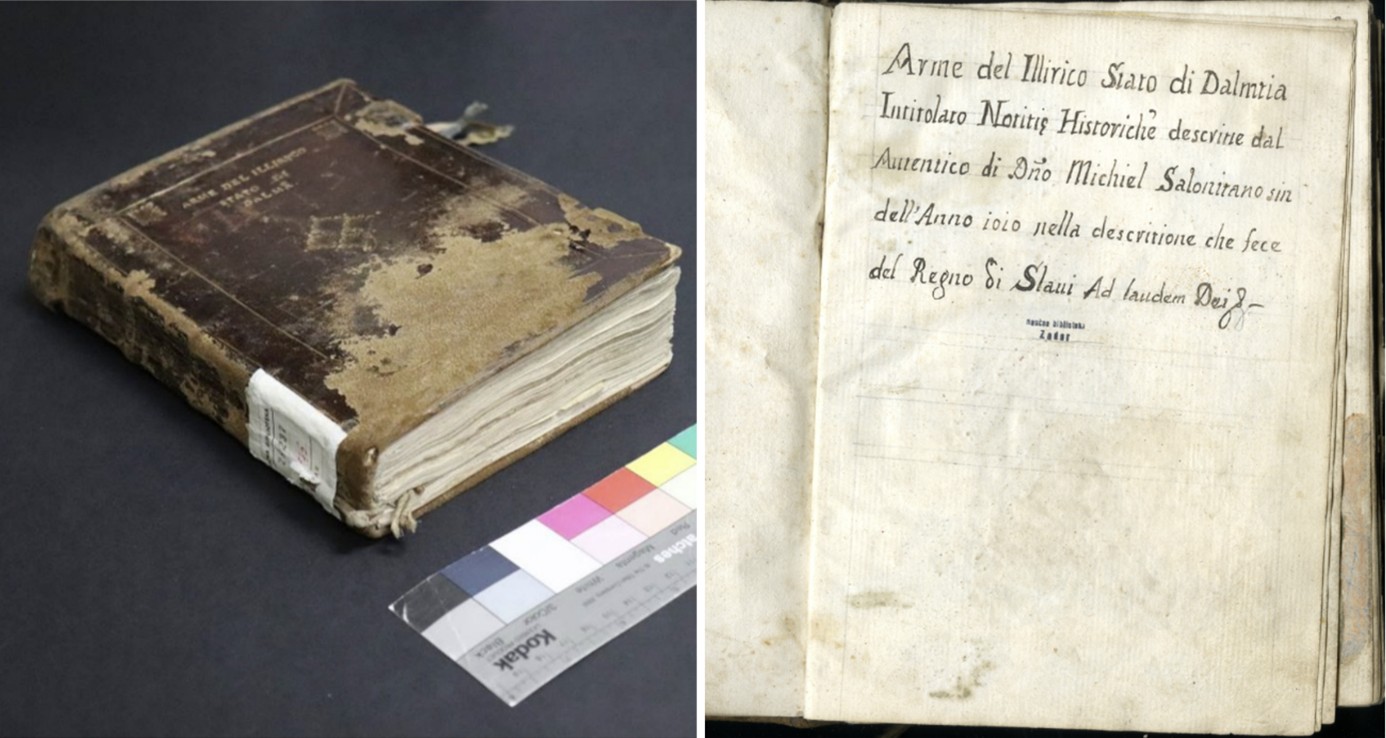 ARME DEL ILLIRICO
STATO DI
DALMA
Kodak
Black
3/Color
White
Magenta
Red
Patches
Arme del Illirico Stato di Dalmtia
Intitolato Notitię Historichè descritte dal
Autentico di Dño Michiel Salonitano sin
dell'Anno 1010 nella descritione che fece
del Regno di Slaui Ad laudem Dei
naučna biblioteka
Zadar